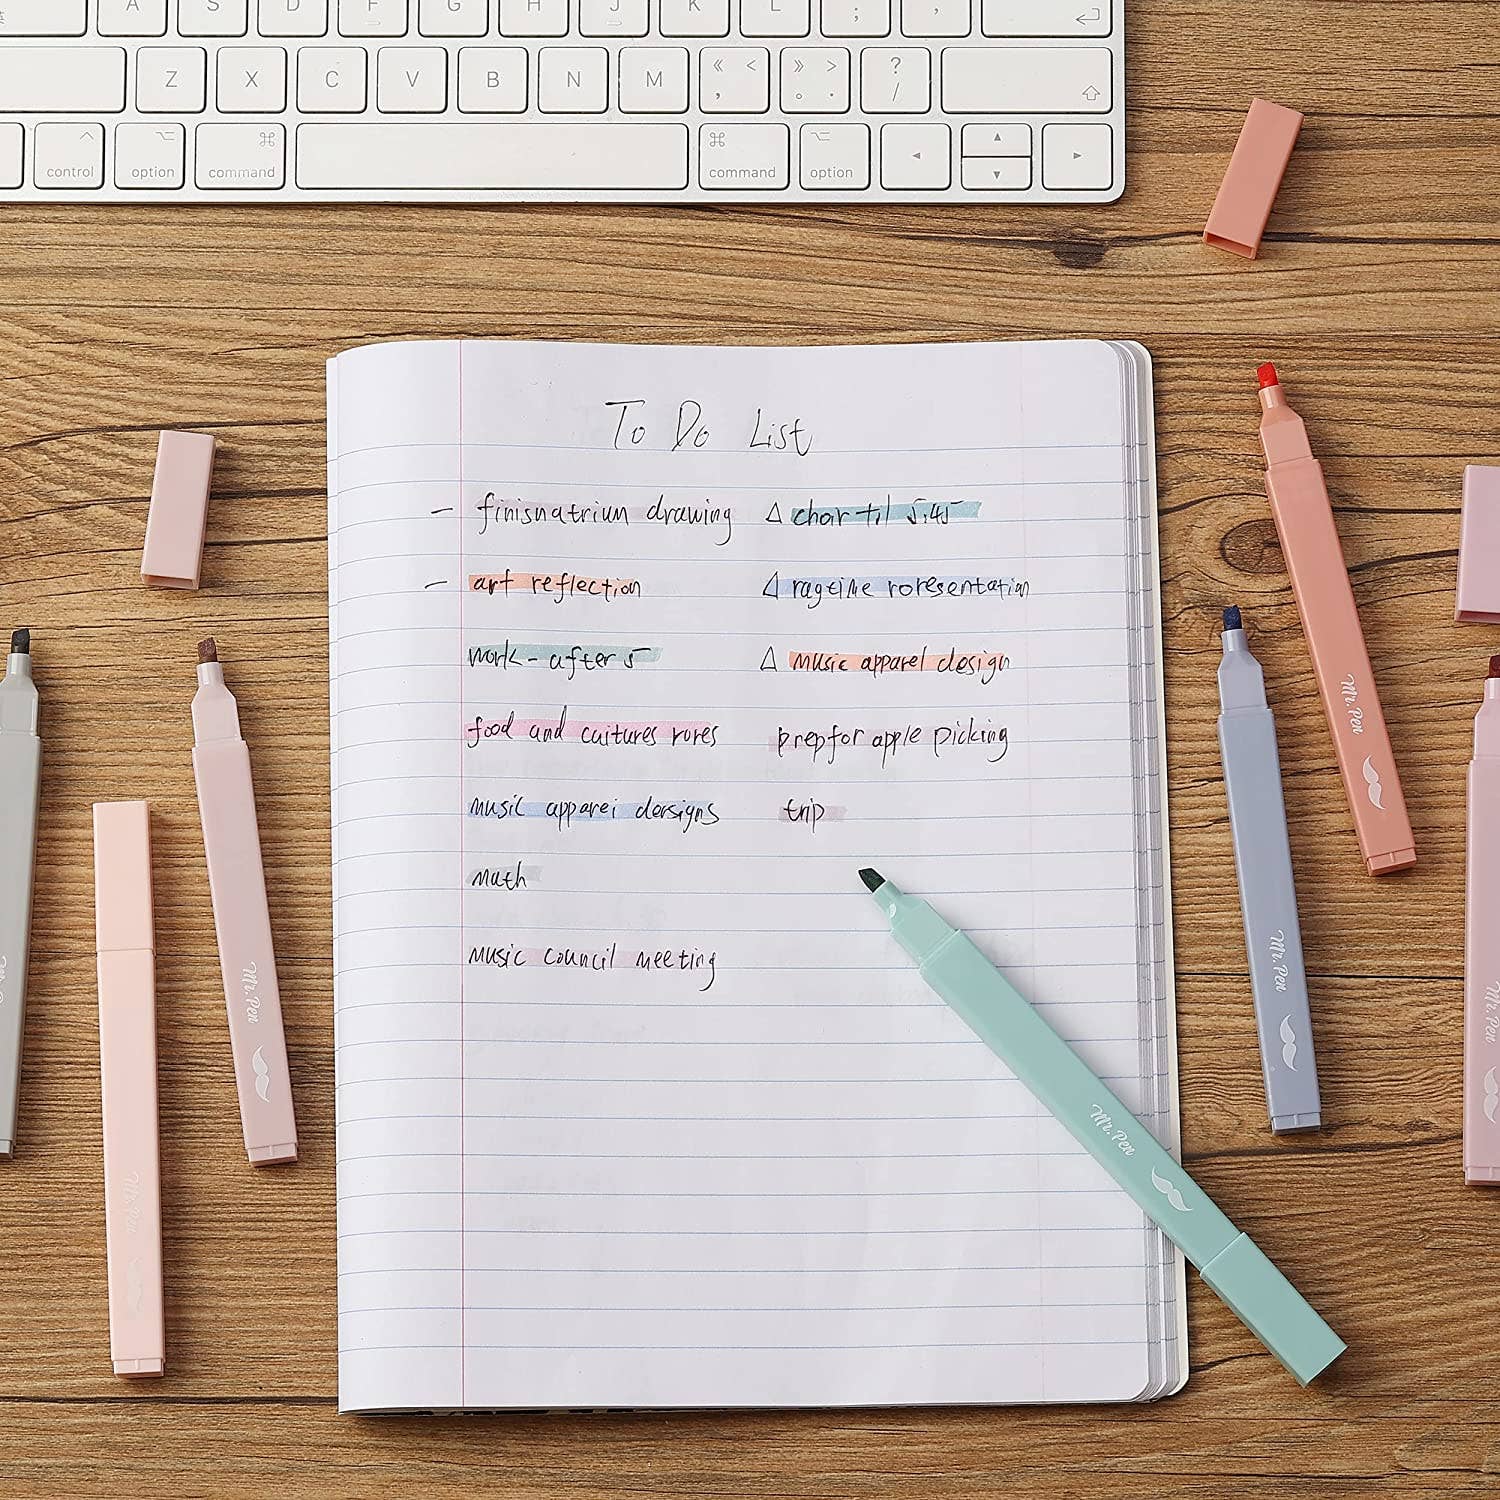 A S D F G H J K L ; ,
Z X C V B N M « < , » > 。 . ? /
control option command command option
To Do List
- finisnatrium drawing
- art reflection
work - after 5
food and cuitures rores
music apparei dersigns
math
music council meeting
Δ choir til 5:45
Δ ragtime roresentation
Δ music apparel design
prep for apple picking
trip
Mr. Pen
Mr. Pen
Mr. Pen
Mr. Pen
Mr. Pen
Mr. Pen
Mr. Pen